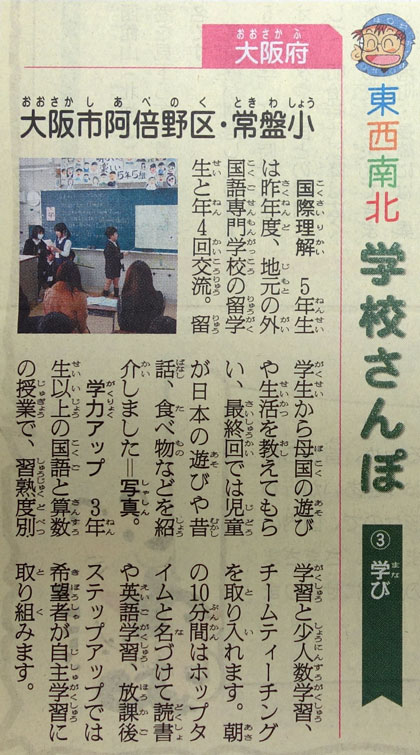 東西南北
学校さんぽ
③学び
大阪府
おおさかふ
大阪市阿倍野区・常盤小
おおさかしあべのく ときわしょう
国際理解 5年生
は昨年度、地元の外
国語専門学校の留学
生と年4回交流。留
学生から母国の遊び
や生活を教えてもら
い、最終回では児童
が日本の遊びや昔
話、食べ物などを紹
介しました＝写真。
学力アップ 3年
生以上の国語と算数
の授業で、習熟度別
学習と少人数学習、
チームティーチング
を取り入れます。朝
の10分間はホップタ
イムと名づけて読書
や英語学習、放課後
ステップアップでは
希望者が自主学習に
取り組みます。